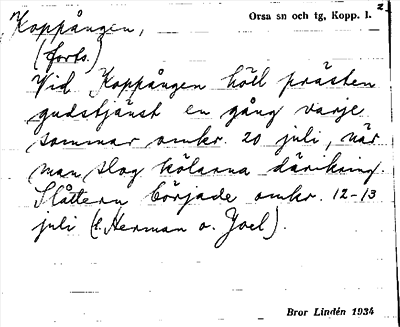 Koppången,
Orsa sn och tg, Kopp. l. 2.
(forts.)
Vid Koppången höll prästen
gudstjänst en gång varje
sommar omkr. 20 juli, när
man slog hölarna däríkring.
Slåttern började omkr. 12-13
juli (l. Herman o. Joel).
Bror Lindén 1934